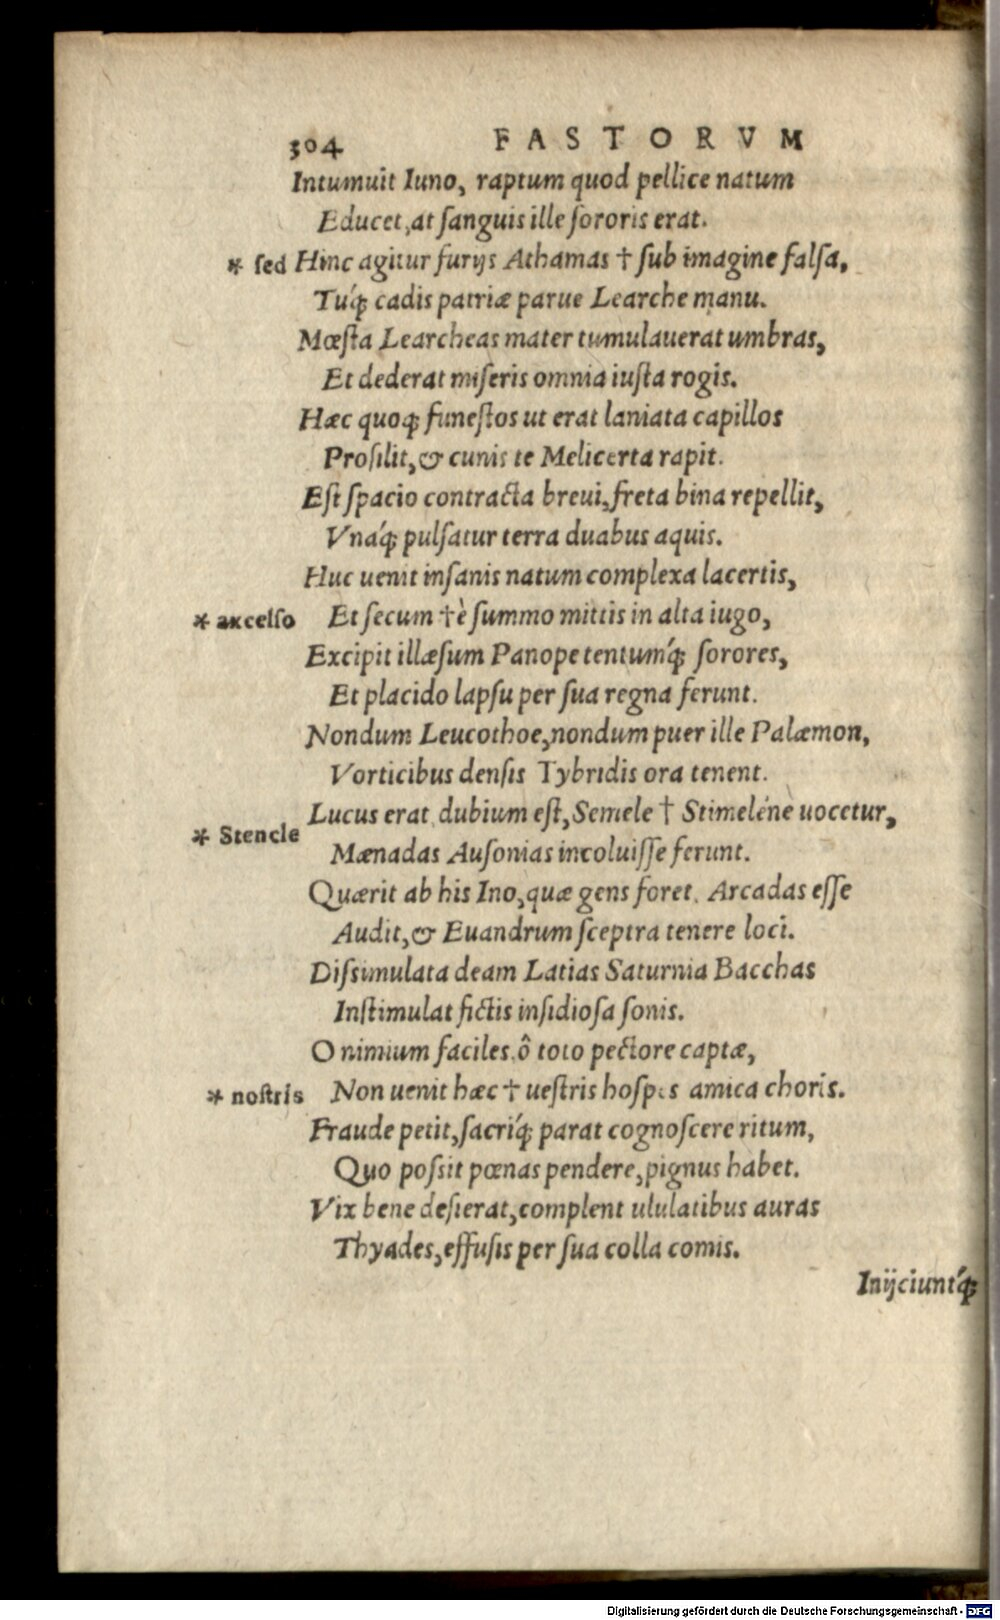 304 FASTORVM
Intumuit Iuno, raptum quod pellice natum
Educet, at ſanguis ille ſororis erat.
* ſed Hinc agitur furijs Athamas † ſub imagine falſa,
Tuq́; cadis patriæ parue Learche manu.
Mœſta Learcheas mater tumulauerat umbras,
Et dederat miſeris omnia iuſta rogis.
Hæc quoq; funeſtos ut erat laniata capillos
Proſilit, & cunis te Melicerta rapit.
Eſt ſpacio contracta breui, freta bina repellit,
Vnaq́; pulſatur terra duabus aquis.
Huc uenit inſanis natum complexa lacertis,
* axcelſo Et ſecum † è ſummo mittis in alta iugo,
Excipit illæſum Panope tentumq́; ſorores,
Et placido lapſu per ſua regna ferunt.
Nondum Leucothoe, nondum puer ille Palæmon,
Vorticibus denſis Tybridis ora tenent.
Lucus erat dubium eſt, Semele † Stimeléne uocetur,
* Stencle
Mænadas Auſonias incoluiſſe ferunt.
Quærit ab his Ino, quæ gens foret. Arcadas eſſe
Audit, & Euandrum ſceptra tenere loci.
Diſsimulata deam Latias Saturnia Bacchas
Inſtimulat fictis inſidioſa ſonis.
O nimium faciles. ô toto pectore captæ,
* noſtris Non uenit hæc † ueſtris hoſpes amica choris.
Fraude petit, ſacriq́; parat cognoſcere ritum,
Quo poſsit pœnas pendere, pignus habet.
Vix bene deſierat, complent ululatibus auras
Thyades, effuſis per ſua colla comis.
Inijciuntq́;
Digitalisierung gefördert durch die Deutsche Forschungsgemeinschaft - DFG